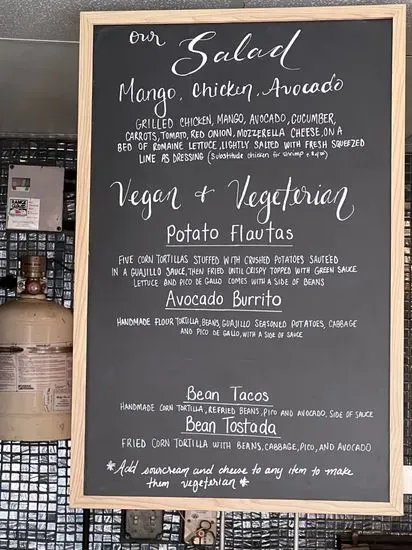 our Salad
Mango, Chicken, Avocado
GRILLED CHICKEN, MANGO, AVOCADO, CUCUMBER,
CARROTS, TOMATO, RED ONION, MOZZERELLA CHEESE, ON A
BED OF ROMAINE LETTUCE, LIGHTLY SALTED WITH FRESH SQUEEZED
LIME AS DRESSING (Substitude chicken for shrimp
Vegan & Vegeterian
Potato Flautas
FIVE CORN TORTILLAS STUFFED WITH CRUSHED POTATOES SAUTEED
IN A GUAJILLO SAUCE, THEN FRIED UNTIL CRISPY TOPPED WITH GREEN SAUCE
LETTUCE AND PICO DE GALLO COMES WITH A SIDE OF BEANS
Avocado Burrito
HANDMADE FLOUR TORTILLA, BEANS, GUAJILLO SEASONED POTATOES, CABBAGE
AND PICO DE GALLO, WITH A SIDE OF SAUCE
Bean Tacos
HANDMADE CORN TORTILLA, REFRIED BEANS, PICO AND AVOCADO, SIDE OF SAUCE
Bean Tostada
FRIED CORN TORTILLA WITH BEANS, CABBAGE, PICO, AND AVOCADO
*Add sourcream and cheese to any item to make
them vegeterian*